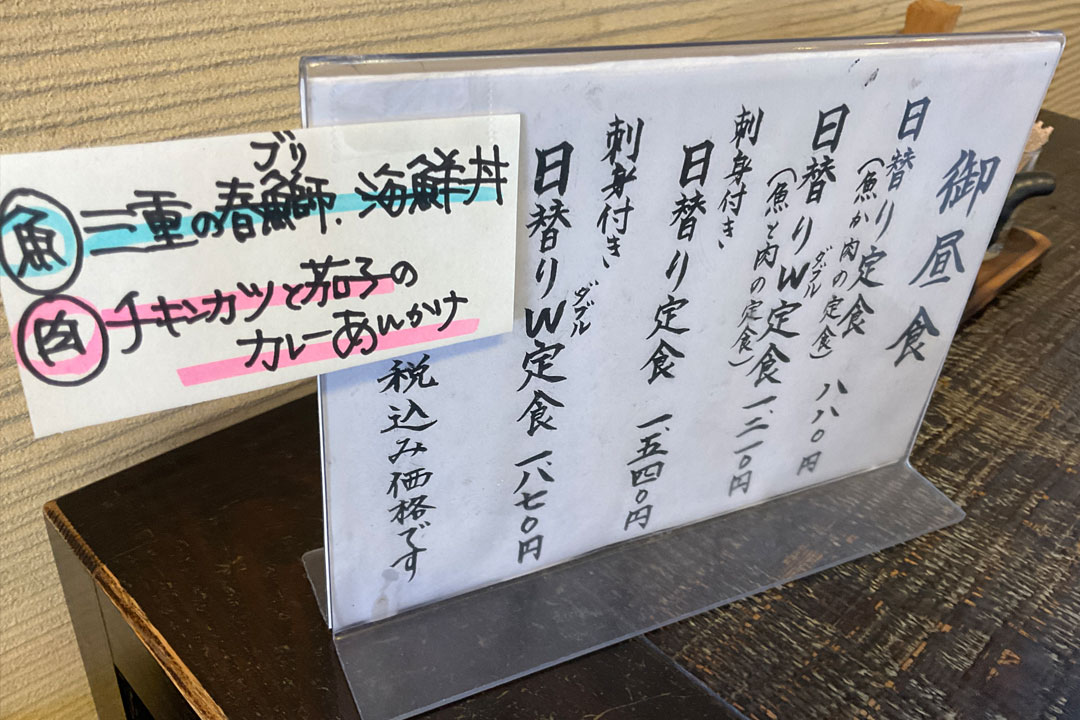 魚 三重の春鰤. 海鮮丼
ブリ
肉 チキンカツと茄子の
カレーあんかけ
御昼食
日替り定食
(魚か肉の定食) 八八〇円
日替りW定食
ダブル
(魚と肉の定食) 一、二一〇円
刺身付き
日替り定食 一、五四〇円
刺身付き
日替りW定食 一、八七〇円
ダブル
税込み価格です